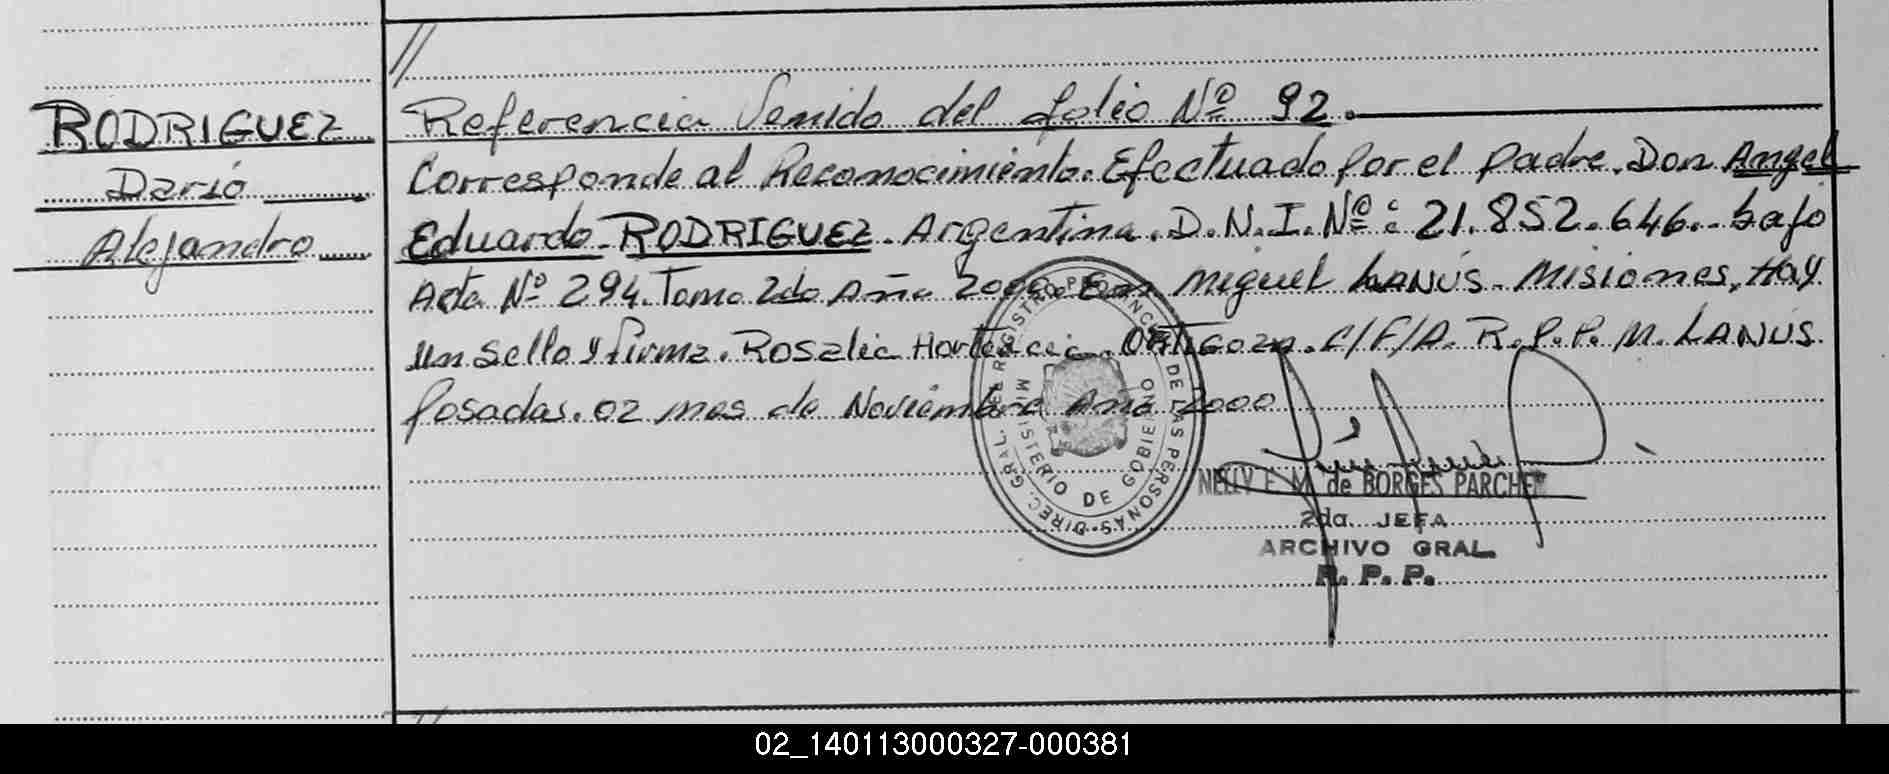 //
RODRIGUEZ
Dario
Alejandro
Referencia Venido del folio Nº 92.
Corresponde al Reconocimiento. Efectuado por el padre. Don Angel
Eduardo RODRIGUEZ. Argentina. D.N.I. Nº: 21.852.646.- bajo
Acta Nº 294. Tomo 2do Año 2000. En Miguel LANÚS. Misiones, Hay
un sello y firma. Rosalia Hortencia. ORTIGOZA. C/F/A. R.P.P. M. LANUS.
Posadas. 02 mes de Noviembre Año 2000
DIREC. GRAL. DEL REGISTRO PROVINCIAL DE LAS PERSONAS
MINISTERIO DE GOBIERNO
NELLY E. M. de BORGES PARCHE
2da. JEFA
ARCHIVO GRAL.
R. P. P.
02_140113000327-000381